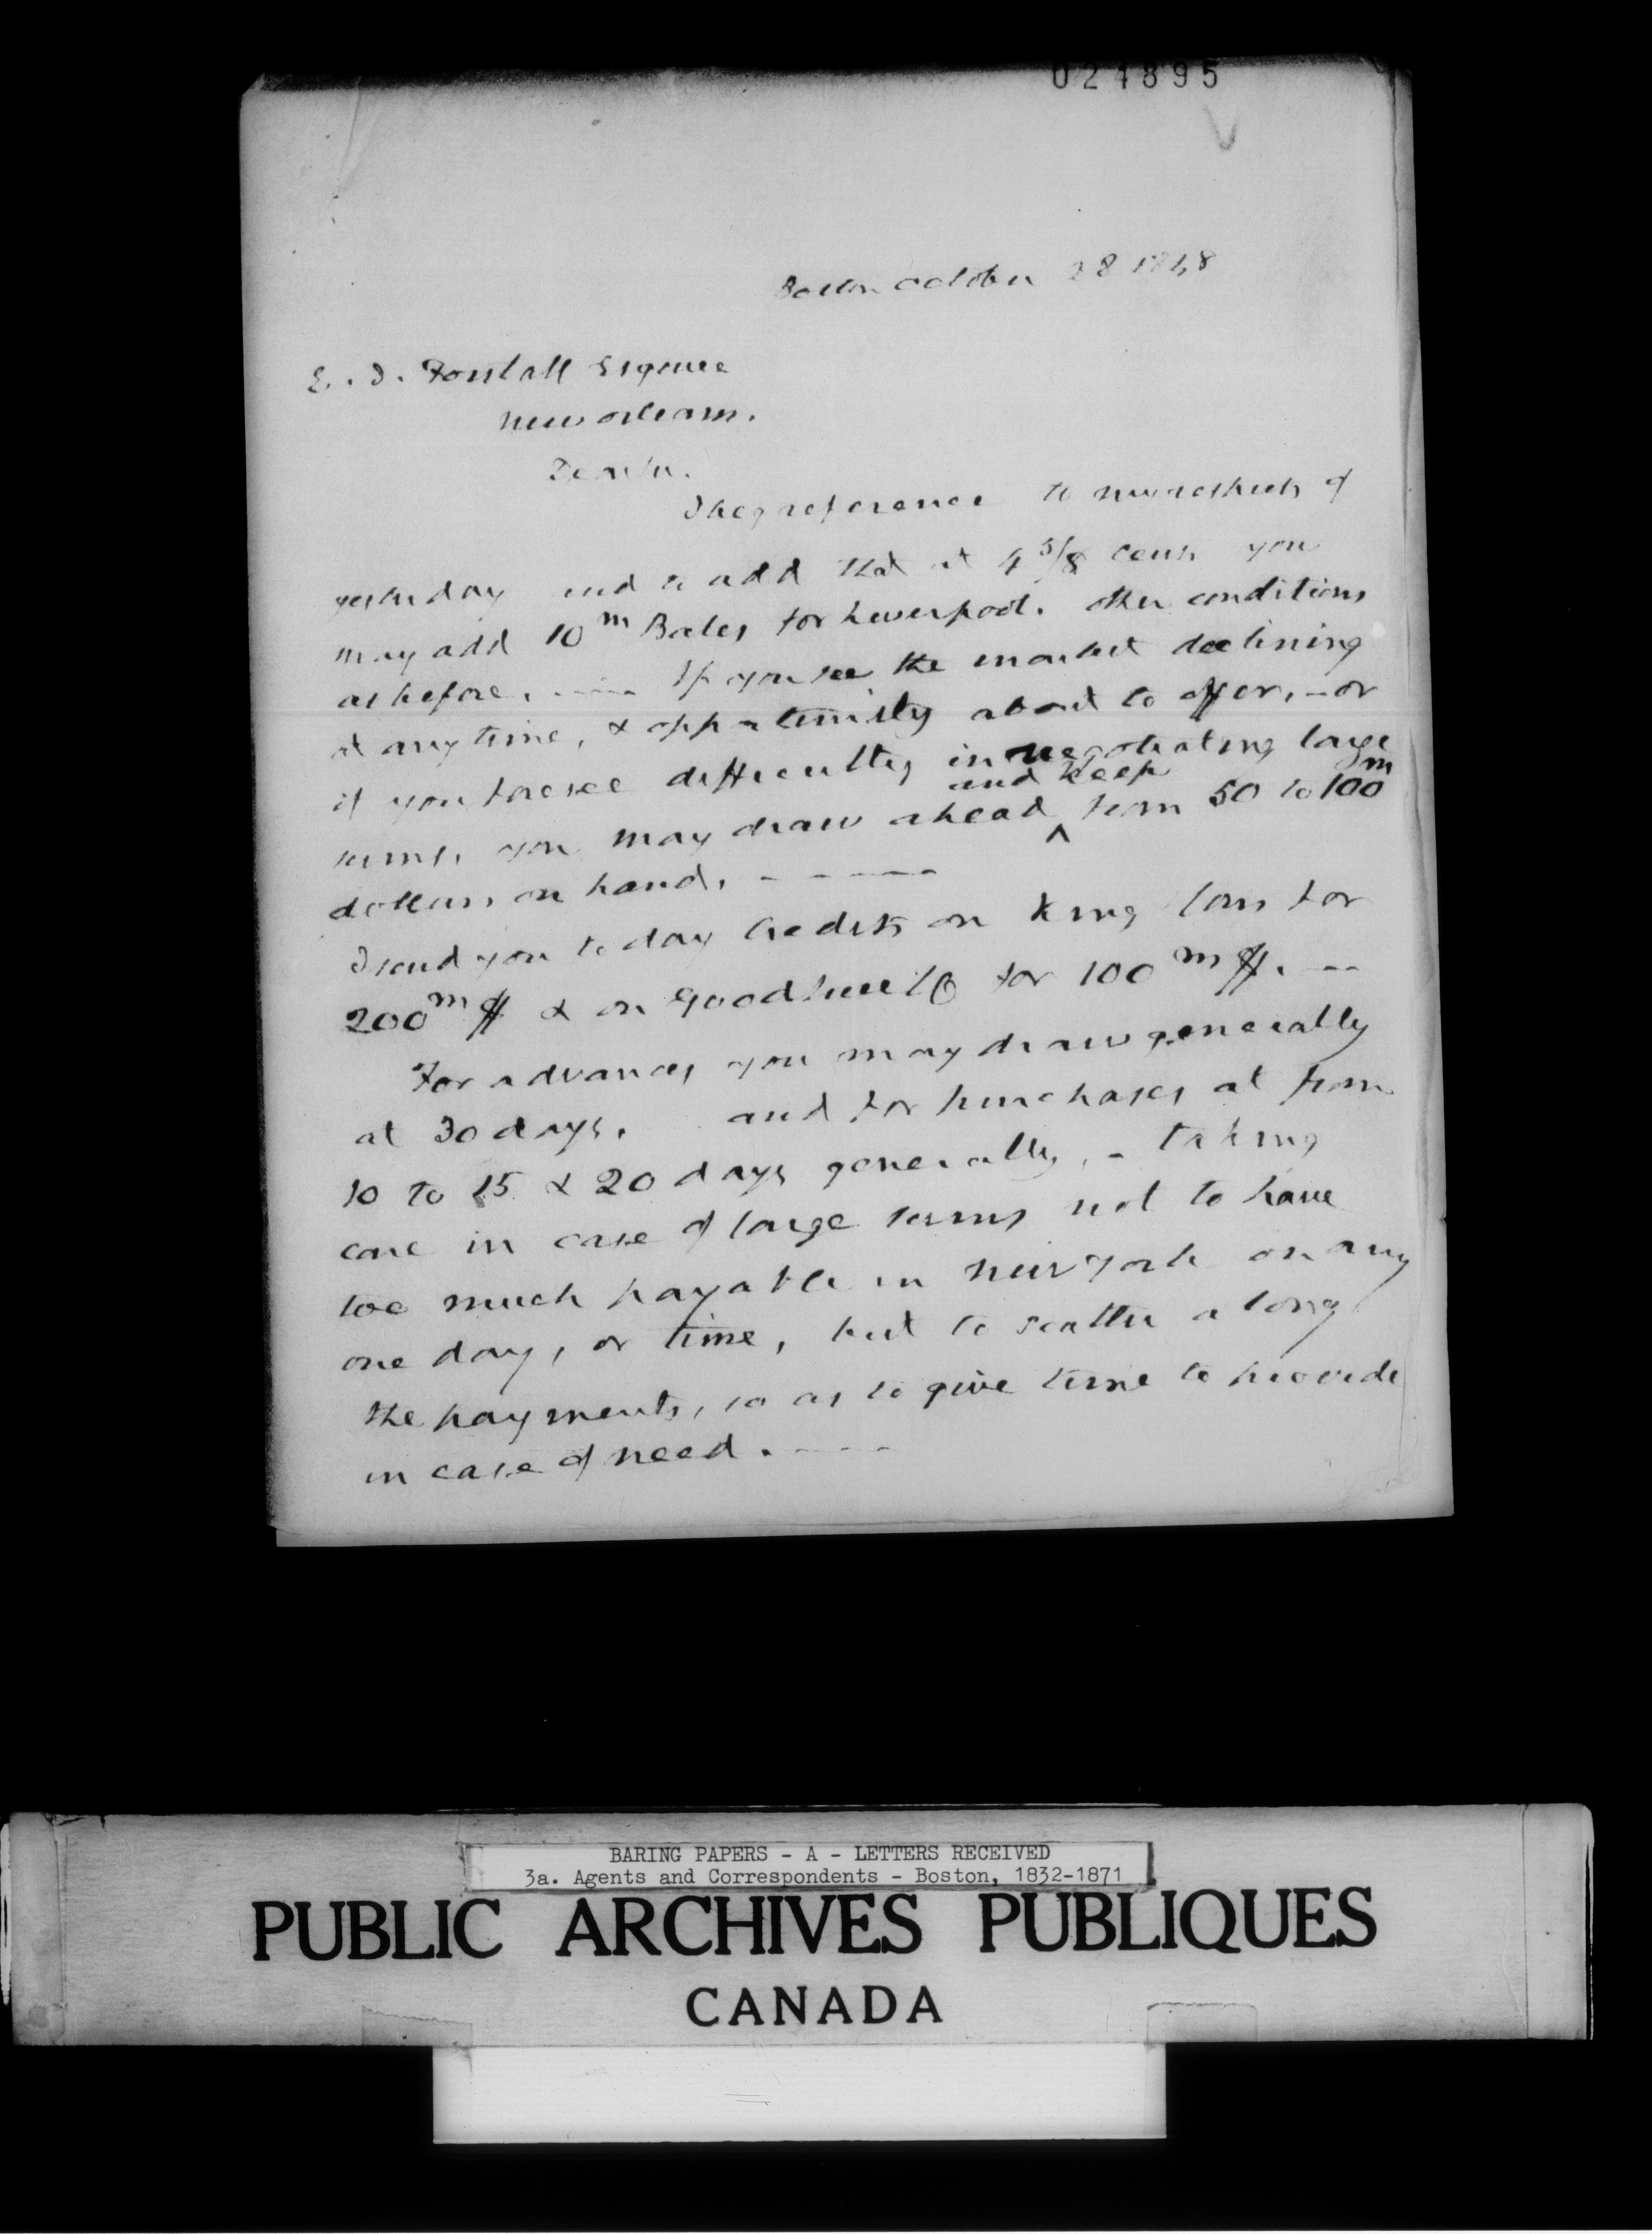 024895
Boston October 28 1848
E. J. Forstall Esquire
New Orleans.
Dear Sir.
I beg reference to my respects of
yesterday and to add that at 4 5/8 cents you
may add 10 m Bales for Liverpool. other conditions
as before. If you see the market declining
at any time, & opportunity about to offer, - or
if you foresee difficulty in negotiating large
sums, you may draw ahead ^ and keep from 50 to 100 m
dollars on hand. - - - - -
I send you to day Credits on King for
200 m $ & on Goodhue & Co for 100 m $. --
For advances you may draw generally
at 30 days. and for purchases at from
10 to 15 & 20 days generally, - taking
care in case of large sums not to have
too much payable in New York on any
one day, or time, but to scatter along
the payments, so as to give time to provide
in case of need. - - - -
BARING PAPERS - A - LETTERS RECEIVED
3a. Agents and Correspondents - Boston, 1832-1871
PUBLIC ARCHIVES PUBLIQUES
CANADA